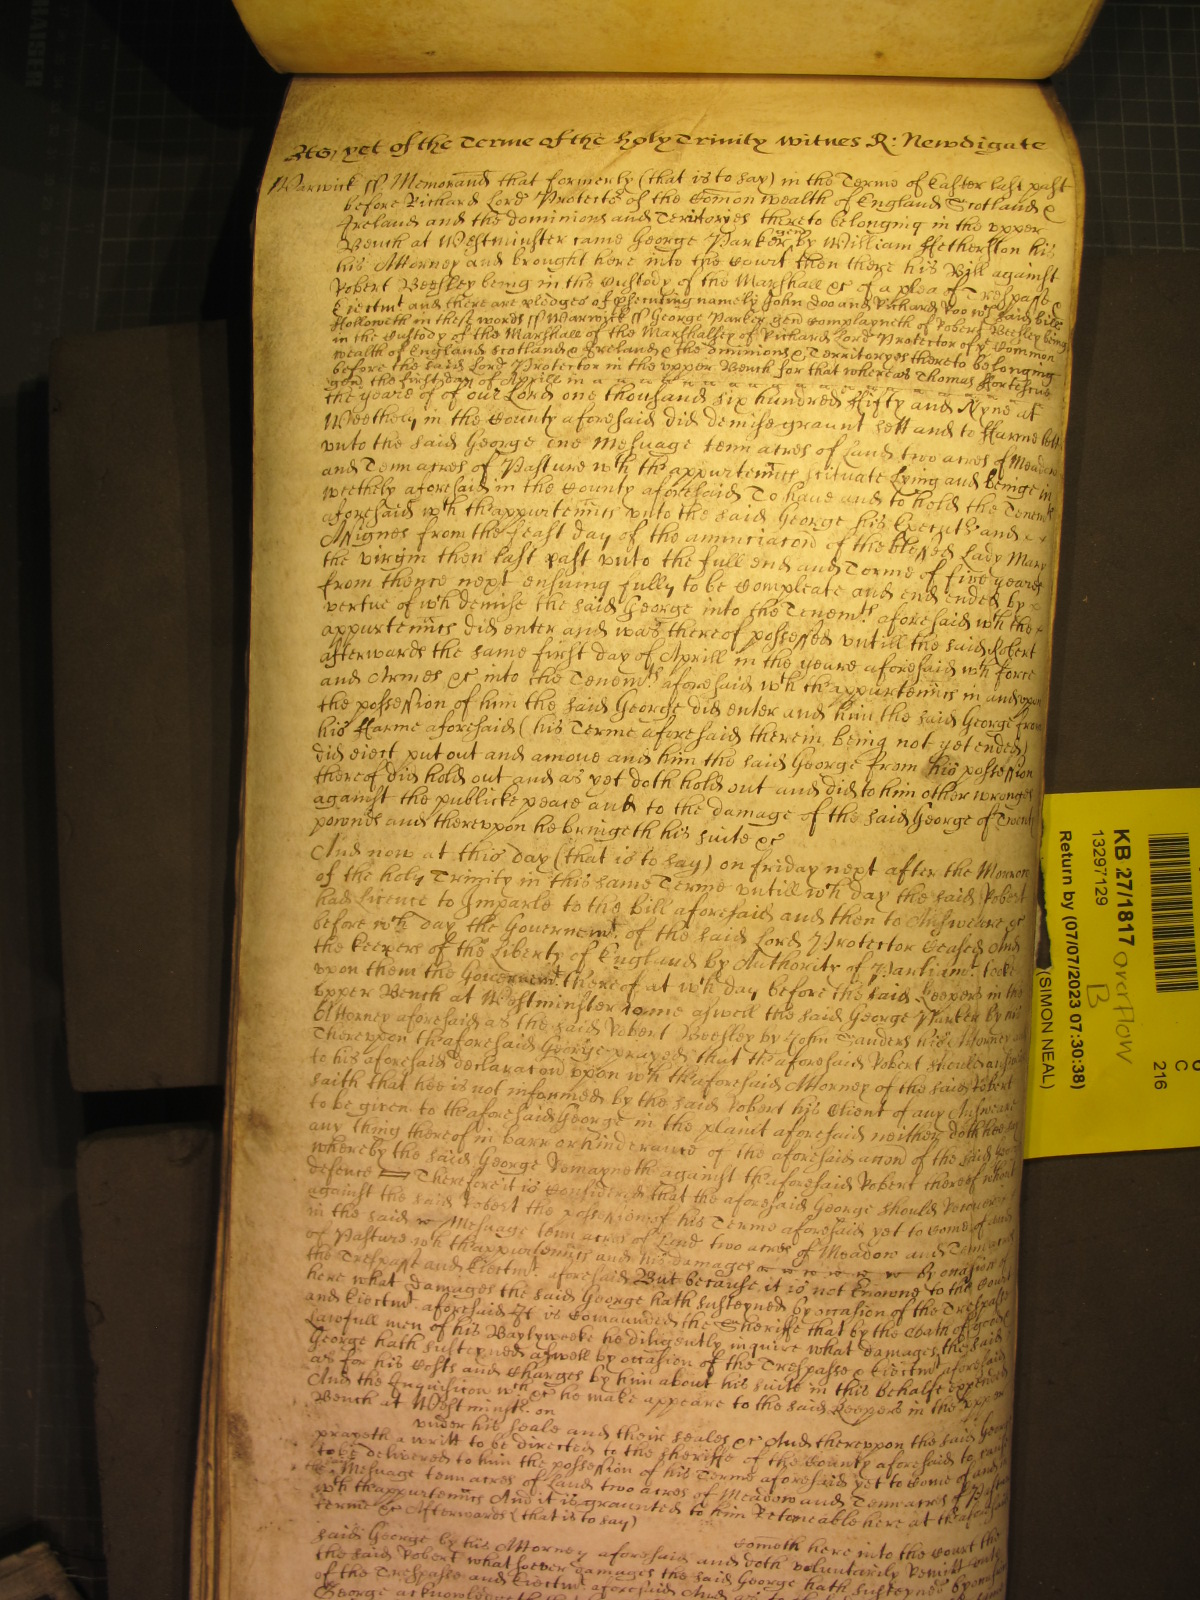 As yet of the Terme of the holy Trinity witnes R: Newdigate
Warwick ss Memorand that formerly (that is to say) in the Terme of Easter last past
before Richard Lord Protector of the Comon wealth of England Scotland &
Ireland and the dominions and Territoryes thereto belonging in the upper
Bench at Westminster came George Parker gen by William Hetherston his
his Attorney and brought here into the Court then there his Bill against
Robert Beesley being in the Custody of the Marshall &c of a plea of Trespasse &
Eiectmt and there are pledges of psecuting namely John Doo and Richard Roo wch said bill
followeth in these words ss Warwick ss George Parker gen complayneth of Robert Beesley being
in the Custody of the Marshall of the Marshalsey of Richard Lord Protector of ye Common
wealth of England Scotland & Ireland & the dominions & Territoryes thereto belonging
before the said Lord Protector in the upper Bench for that whereas Thomas ffortescue
gen the first day of Aprill in
the yeare of of our Lord one thousand six hundred ffifty and Nyne at
Weethley in the County aforesaid did demise graunt sett and to ffarme lett
unto the said George one Mesuage tenn acres of Land two acres of Meadow
and Tenn acres of Pasture wth thappurtennces scituate lying and beinge in
weethely aforesaid in the County aforesaid To have and to hold the Tenemts
aforesaid wth thappurtennces unto the said George his Executrs and
Assignes from the feast day of the annunciacon of the blessed Lady Mary
the virgin then last past unto the full end and Terme of five yeares
from thence next ensuing fully to be compleate and end ended by
vertue of wch demise the said George into the Tenemts aforesaid wth the
appurtennces did enter and was thereof possessed untill the said Robert
afterwards the same first day of Aprill in the yeare aforesaid wth force
and Armes &c into the Tenemts aforesaid wth thappurtennces in and upon
the possession of him the said George did enter and him the said George from
his ffarme aforesaid (his Terme aforesaid therein being not yet ended)
did eiect put out and amove and him the said George from his possession
thereof did hold out and as yet doth hold out and did to him other wronges
against the publicke peace and to the damage of the said George of Twenty
pownds and thereupon he bringeth his suite &c
And now at this day (that is to say) on friday next after the Morrow
of the holy Trinity in this same Terme untill wch day the said Robert
had Licence to Imparle to the bill aforesaid and then to Answeare &c
before wch day the Governemt of the said Lord Protector Ceased And
the Keepers of the Liberty of England by Authority of Parliamt tooke
upon them the Governemt thereof at wch day before the said Keepers in the
upper Bench at Westminster come aswell the said George Parker by his
Attorney aforesaid as the said Robert Beesley by John Sanders his Attorney and
Thereupon thaforesaid George prayed that thaforesaid Robert should answeare
to his aforesaid declaracon upon wch thaforesaid Attorney of the said Robert
saith that hee is not informed by the said Robert his Client of any Answeare
to be given to thaforesaid George in the plaint aforesaid neither doth hee say
any thing thereof in barr or hinderance of the aforesaid accon of the said George
whereby the said George Remayneth against thaforesaid Robert thereof without
defence Therefore it is Considered that the aforesaid George should Recover
against the said Robert the possession of his Terme aforesaid yet to come of and
in the said Mesuage tenn acres of Land two acres of Meadow and Tenn acres
of Pasture wth thappurtennces and his damages by occasion of
the Trespasse and Eiectmt aforesaid But because it is not knowne to the Court
here what damages the said George hath susteyned by occasion of the Trespasse
and Eiectmt aforesaid It is Comaunded the Sheriffe that by the Oath of good
Lawfull men of his Baylyweeke he diligently inquire what damages the said
George hath susteyned aswell by occasion of the Trespasse & Eiectmt aforesaid
as for his Costs and Charges by him about his suite in this behalfe expended
And the Inquisicon wch &c he make appeare to the said Keepers in the upper
Bench at Westminstr on
under his seale and their seales &c And thereupon the said George
prayeth a writt to be directed to the sheriffe of the County aforesaid to cause
to be delivered to him the possession of his Terme aforesaid yet to come of and in
the said Mesuage tenn acres of Land two acres of Meadow and Tenn acres of Pasture
wth thappurtennces And it is graunted to him Retorneable here at thaforesaid
terme &c Afterwards (that is to say)
cometh here into the Court the
said George by his Attorney aforesaid and doth voluntarily Remitt unto
the said Robert whatsoever damages the said George hath susteyned by occasion
of the Trespasse and Eiectmt aforesaid And
George acknowledge
KB 27/1817 overflow
13297129
B
Return by (07/07/2023 07:30:38)
(SIMON NEAL)
C
216